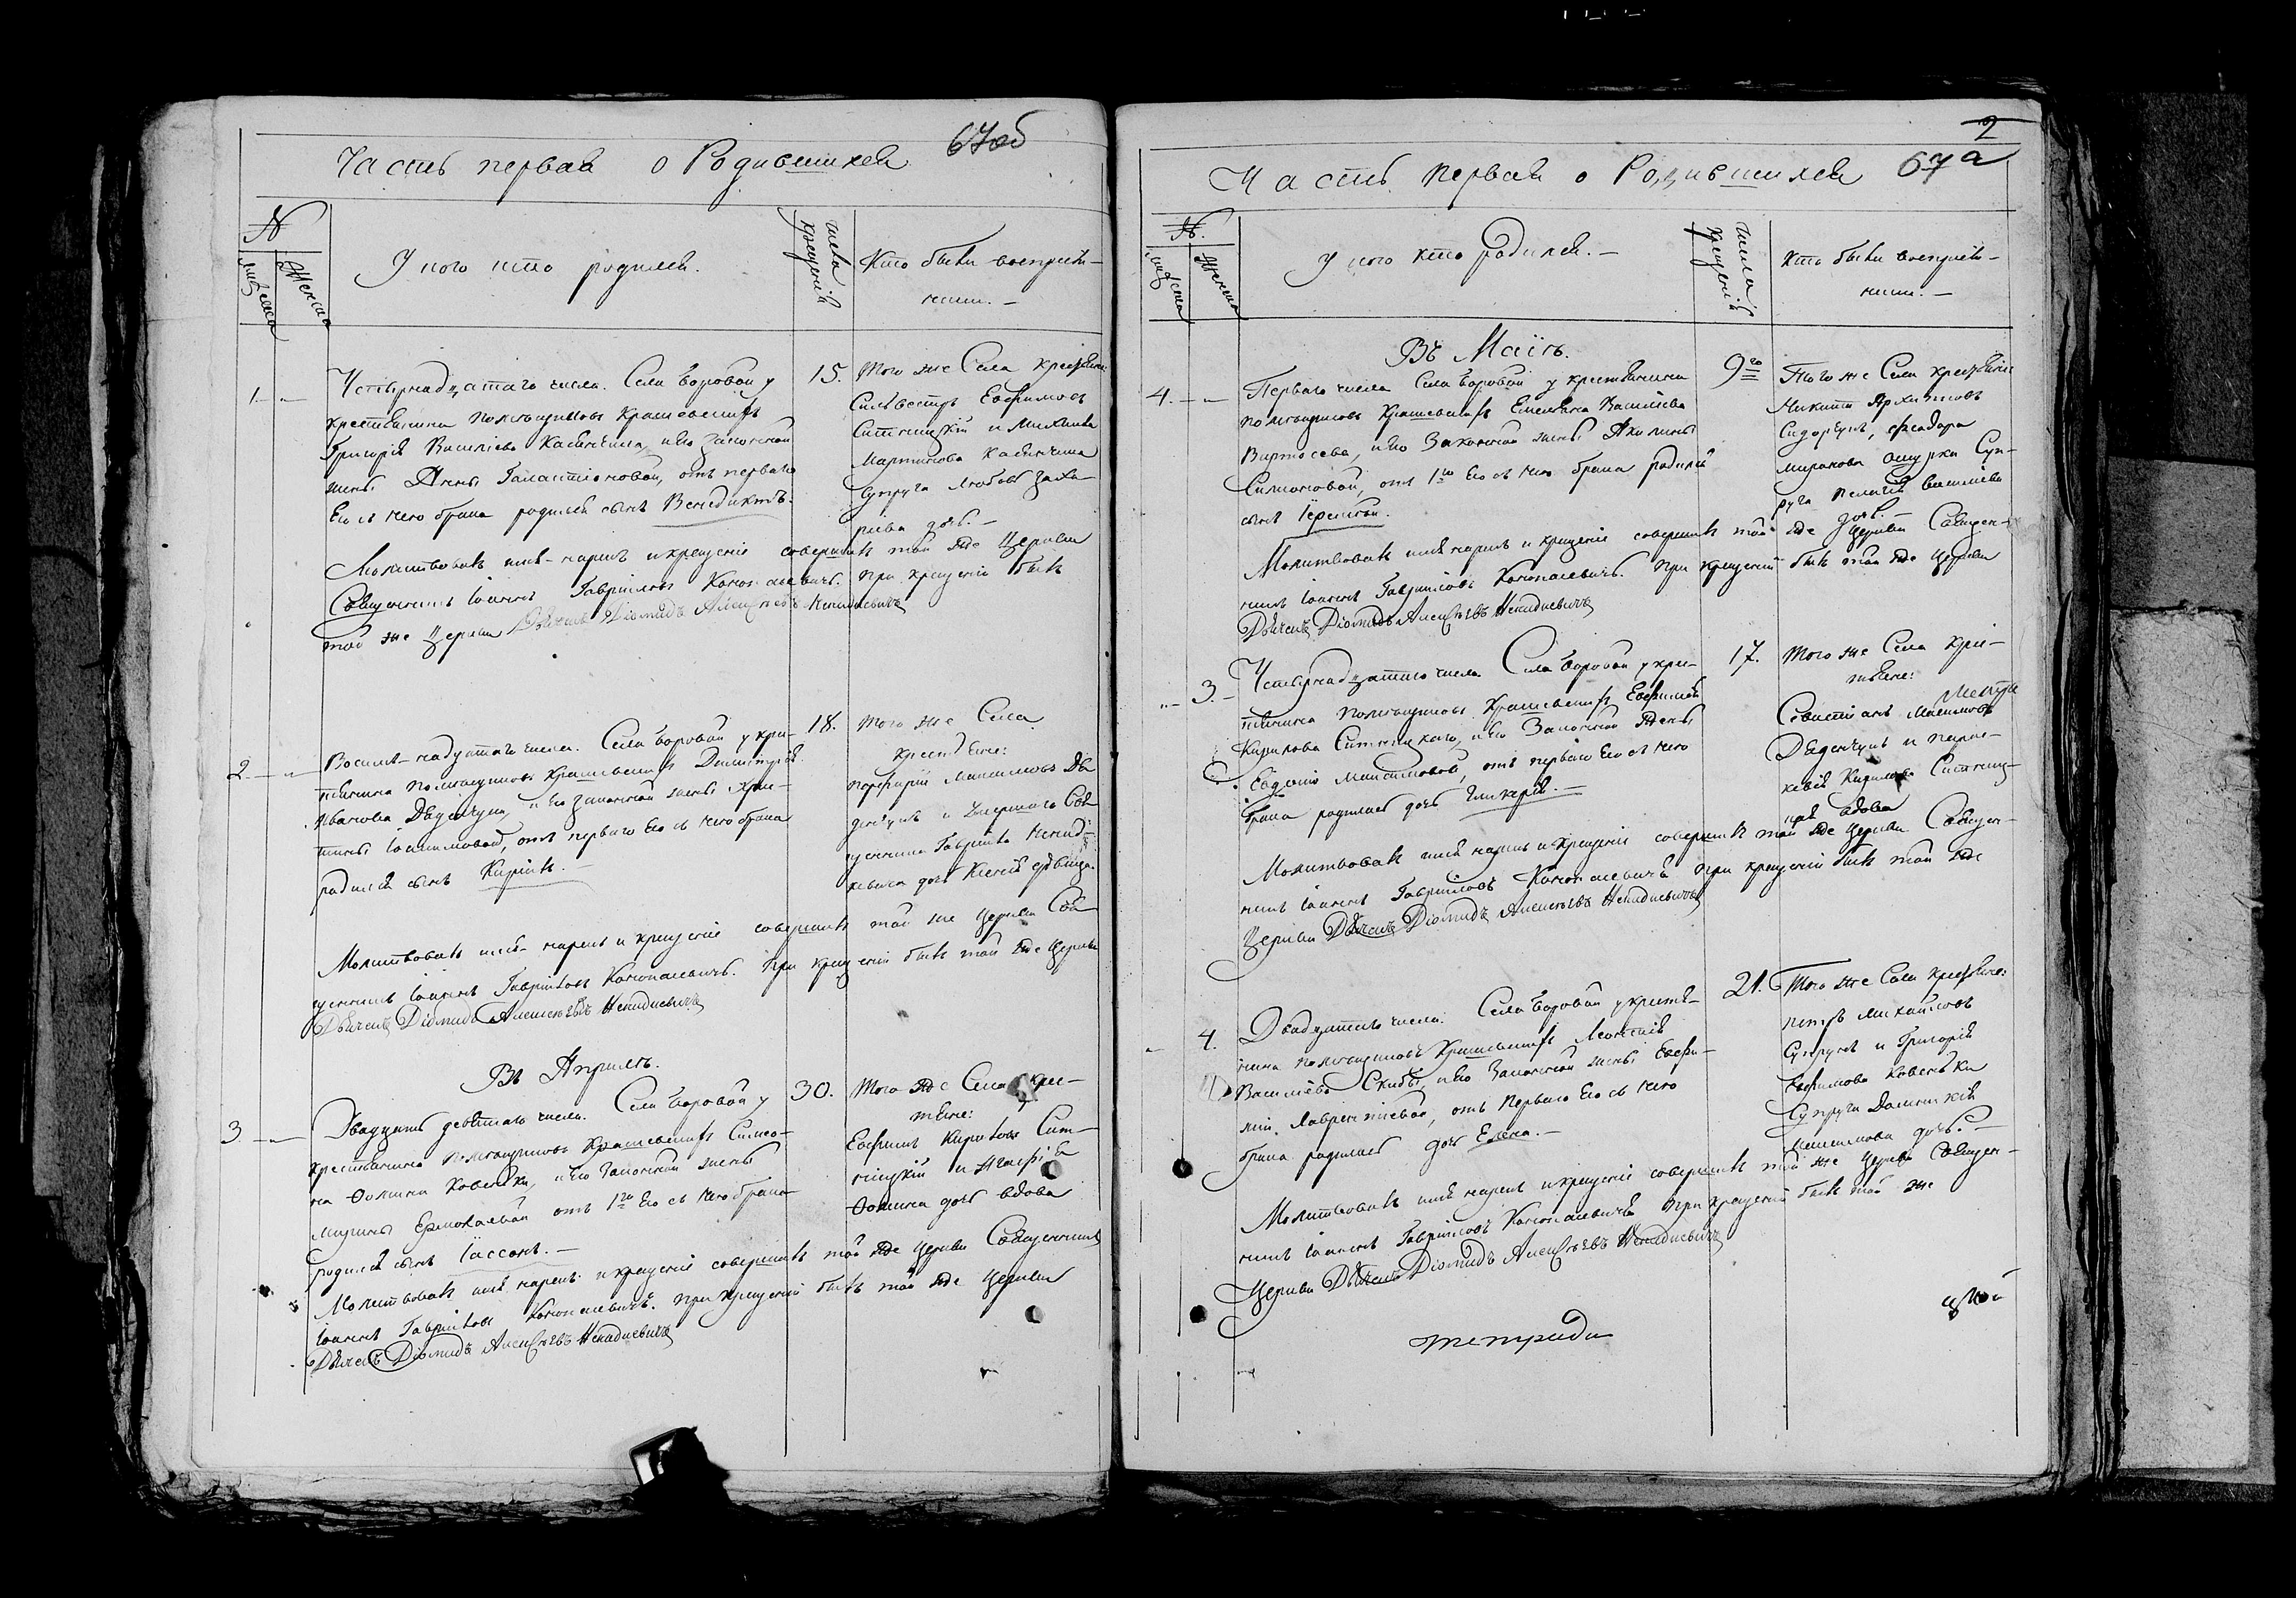 Часть первая о Родившихся 67об
№
мужеска
женска
У кого кто родился.
числа крещенія
Кто были воспріем-
ники. –
1. — „
Четырнадцатаго числа. Села Боровой у
крестьянина помѣщицы
Григорія Василіева Касянчика, и его законной
жены Анны Галактіоновой, отъ перваго
Его съ нею брака родился сынъ Венедиктъ.
15.
Того же Села крестьяне
Сильвестръ Евфимовъ
Ситницкій и Михаила
Мартинова Касянчика
Супруга Любовь Заха-
ріева дочь. –
Молитвовалъ имя нарекъ и крещеніе совершилъ той же Церкви
Священникъ Іоаннъ Гавріиловъ Кононасевичъ. При крещеніи былъ
той же Церкви Дьячекъ Діомидъ Алексѣевъ Ненадкевичъ
2. — „
Восемь-надцатаго числа. Села Боровой у кре-
стьянина помѣщицы Димитрія
Иванова Дяденчука, и Его законной жены Хри-
стины Іоакимовой, отъ перваго Его съ нею брака
родился сынъ Кирилъ. –
18.
Того же Села
крестьяне:
Порфирій Максимовъ Дя
денчукъ и умершаго Свя
щенника Гавріила Ненад-
кевича дочь Ксенія дѣвица.
Молитвовалъ имя- нарекъ и крещеніе совершилъ той же Церкви Свя
щенникъ Іоаннъ Гавріиловъ Кононасевичъ. При крещеніи былъ той же Церкви
Дьячекъ Діомидъ Алексѣевъ Ненадкевичъ
Въ Апрѣлѣ.
3. — „
Двадцять девятаго числа. Села Боровой у
крестьянина помѣщицы Симео-
на Фомина Ковенька, и Его законной жены
Марины Ермолаевой отъ 1го Его съ нею брака
родился сынъ Іассонъ. –
30.
Того же Села крес-
тьяне:
Евфимъ Кириловъ Сит-
ницкій и Агафія
Фомина дочь вдова
Молитвовалъ имя нарекъ и крещеніе совершилъ той же Церкви Священникъ
Іоаннъ Гавріиловъ Кононасевичъ. При крещеніи былъ той же Церкви
Дьячекъ Діомидъ Алексѣевъ Ненадкевичъ
2
Часть первая о Родившихся 67 а
№.
мужеска
женска
У кого кто родился. –
числа крещенія
Кто были воспріем-
ники. –
Въ Маіѣ.
4. — „
Перваго числа Села Боровой у крестьянина
помѣщицы Емеліана Василіева
и его Законной жены Акилины
Симоновой, отъ 1го Его съ нею брака родился
сынъ Іеремія.
9го
Того же Села крестьяне
Никита Архиповъ
Сидорчукъ, Феодора
Миронова Супру-
га Пелагія Василіева
дочь. –
Молитвовалъ имя нарекъ и крещеніе совершилъ той же Церкви Священ-
никъ Іоаннъ Гавріиловъ Кононасевичъ. При крещеніи былъ той же Церкви
Дьячекъ Діомидъ Алексѣевъ Ненадкевичъ
„ — 3.
Четырнадцатаго числа Села Боровой у кре-
стьянина помѣщицы Евфимія
Кирилова Ситницкаго, и Его Законной жены
Евдокіи Максимовой, отъ перваго Его съ нею
брака родилась дочь Гликерія. –
17.
Того же Села крес-
тьяне:
Севастіанъ Максимовъ
Дяденчукъ и Парас-
кевія Кирилова Ситниц-
кая вдова
Молитвовалъ имя нарекъ и крещеніе совершилъ той же Церкви Священ-
никъ Іоаннъ Гавріиловъ Кононасевичъ при крещеніи былъ той же
Церкви Дьячекъ Діомидъ Алексѣевъ Ненадкевичъ
„ 4.
Двадцатаго числа. Села Боровой у крестья-
нина помѣщицы Леонтія
Василіева Скибы, и Его Законной жены Евфи-
міи Лаврентіевой, отъ перваго Его съ нею
брака родилась дочь Елена. –
21.
Того же Села крестьяне:
Петръ Михайловъ
Супрунъ и Григорія
Евфимова Ковенька
Супруга Домникія
Максимова дочь. –
Молитвовалъ имя нарекъ и крещеніе совершилъ той же Церкви Священ-
никъ Іоаннъ Гавріиловъ Кононасевичъ при крещеніи былъ той же
Церкви Дьячекъ Діомидъ Алексѣевъ Ненадкевичъ
тетради